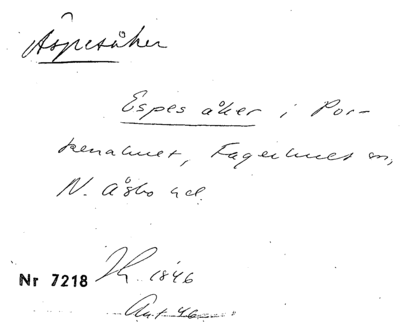 Äspesåker
Espes åker i Por-
kenahult, Fagerhult sn,
N. Åsbo hd.
Nr 7218 1846
Ant 46